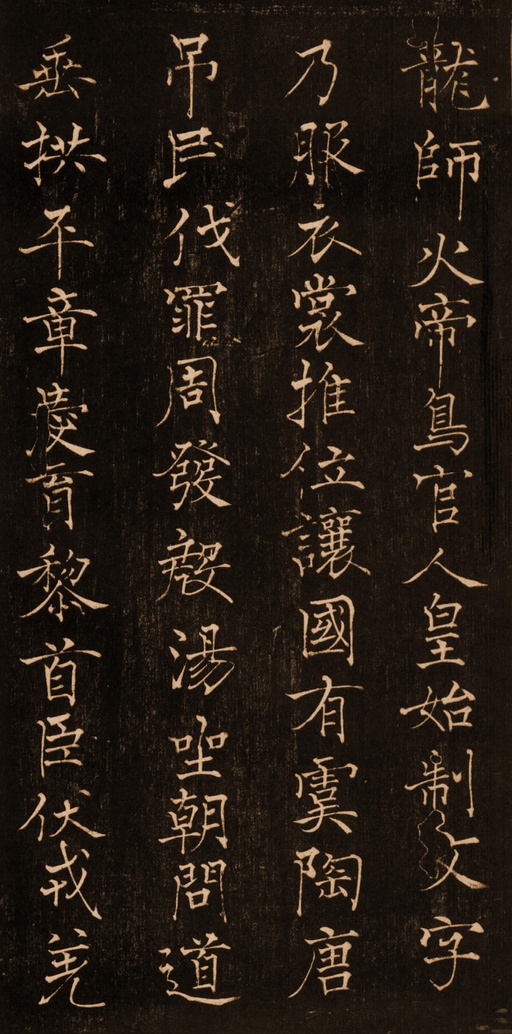 龍師火帝鳥官人皇始制文字
乃服衣裳推位讓國有虞陶唐
吊民伐罪周發殷湯坐朝問道
垂拱平章愛育黎首臣伏戎羌